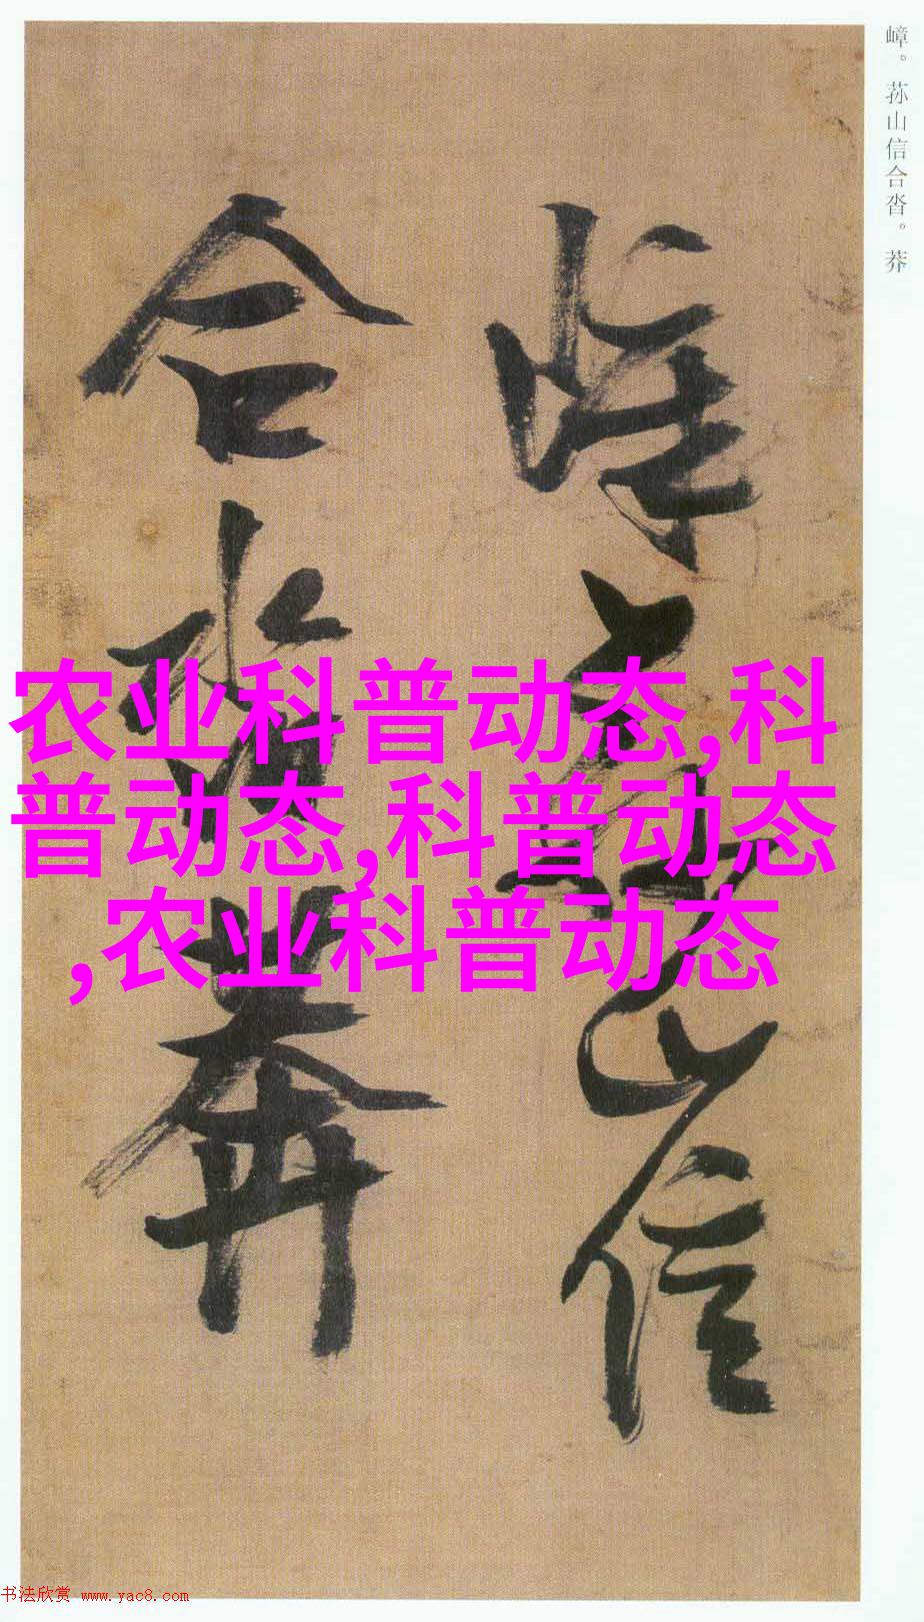 嶂。荪山信合沓。莽
嶂荪山信
合沓莽
农业科普动态,科
普动态,科普动态
,农业科普动态
书法欣赏 www.yac8.com